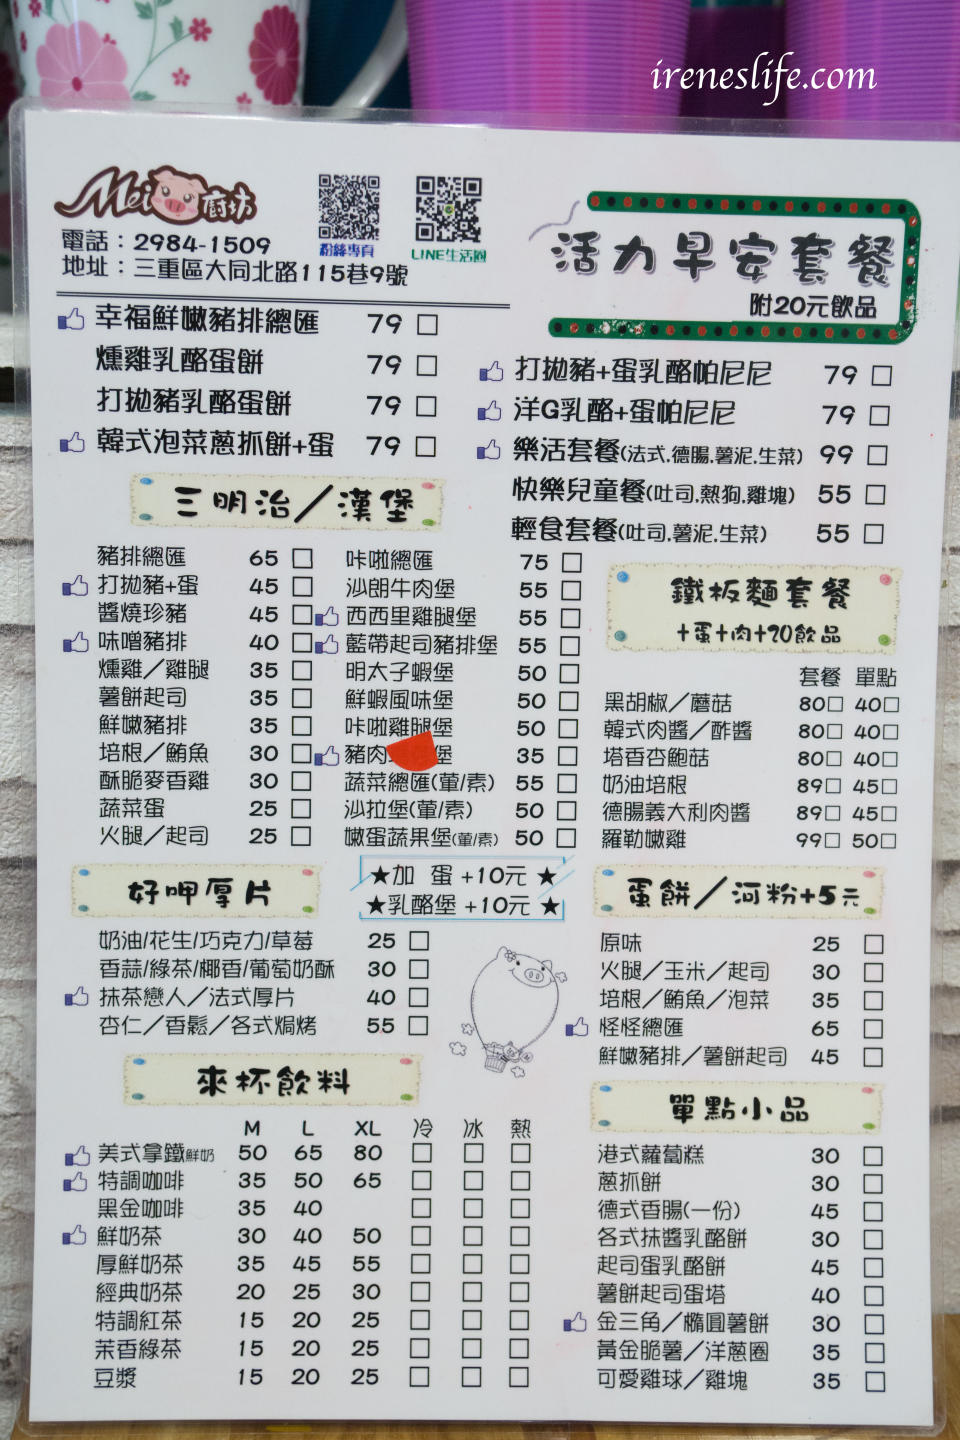 ireneslife.com
Mei廚坊
粉絲專頁
LINE生活圈
電話：2984-1509
地址：三重區大同北路115巷9號
活力早安套餐
附20元飲品
幸福鮮嫩豬排總匯 79
燻雞乳酪蛋餅 79
打拋豬乳酪蛋餅 79
韓式泡菜蔥抓餅+蛋 79
打拋豬+蛋乳酪帕尼尼 79
洋G乳酪+蛋帕尼尼 79
樂活套餐(法式.德腸.薯泥.生菜) 99
快樂兒童餐(吐司.熱狗.雞塊) 55
輕食套餐(吐司.薯泥.生菜) 55
三明治／漢堡
豬排總匯 65
打拋豬+蛋 45
醬燒珍豬 45
味噌豬排 40
燻雞／雞腿 35
薯餅起司 35
鮮嫩豬排 35
培根／鮪魚 30
酥脆麥香雞 30
蔬菜蛋 25
火腿／起司 25
咔啦總匯 75
沙朗牛肉堡 55
西西里雞腿堡 55
藍帶起司豬排堡 55
明太子蝦堡 50
鮮蝦風味堡 50
咔啦雞腿堡 50
豬肉 堡 35
蔬菜總匯(葷/素) 55
沙拉堡(葷/素) 50
嫩蛋蔬果堡(葷/素) 50
鐵板麵套餐
+蛋+肉+20飲品
套餐 單點
黑胡椒／蘑菇 80 40
韓式肉醬／酢醬 80 40
塔香杏鮑菇 80 40
奶油培根 89 45
德腸義大利肉醬 89 45
羅勒嫩雞 99 50
★加 蛋 +10元 ★
★乳酪堡 +10元 ★
好呷厚片
奶油/花生/巧克力/草莓 25
香蒜/綠茶/椰香/葡萄奶酥 30
抹茶戀人／法式厚片 40
杏仁／香鬆／各式焗烤 55
蛋餅／河粉+5元
原味 25
火腿／玉米／起司 30
培根／鮪魚／泡菜 35
怪怪總匯 65
鮮嫩豬排／薯餅起司 45
來杯飲料
M L XL 冷 冰 熱
美式拿鐵鮮奶 50 65 80
特調咖啡 35 50 65
黑金咖啡 35 40
鮮奶茶 30 40 50
厚鮮奶茶 35 45 55
經典奶茶 20 25 30
特調紅茶 15 20 25
茉香綠茶 15 20 25
豆漿 15 20 25
單點小品
港式蘿蔔糕 30
蔥抓餅 30
德式香腸(一份) 45
各式抹醬乳酪餅 30
起司蛋乳酪餅 45
薯餅起司蛋塔 40
金三角／橢圓薯餅 30
黃金脆薯／洋蔥圈 35
可愛雞球／雞塊 35